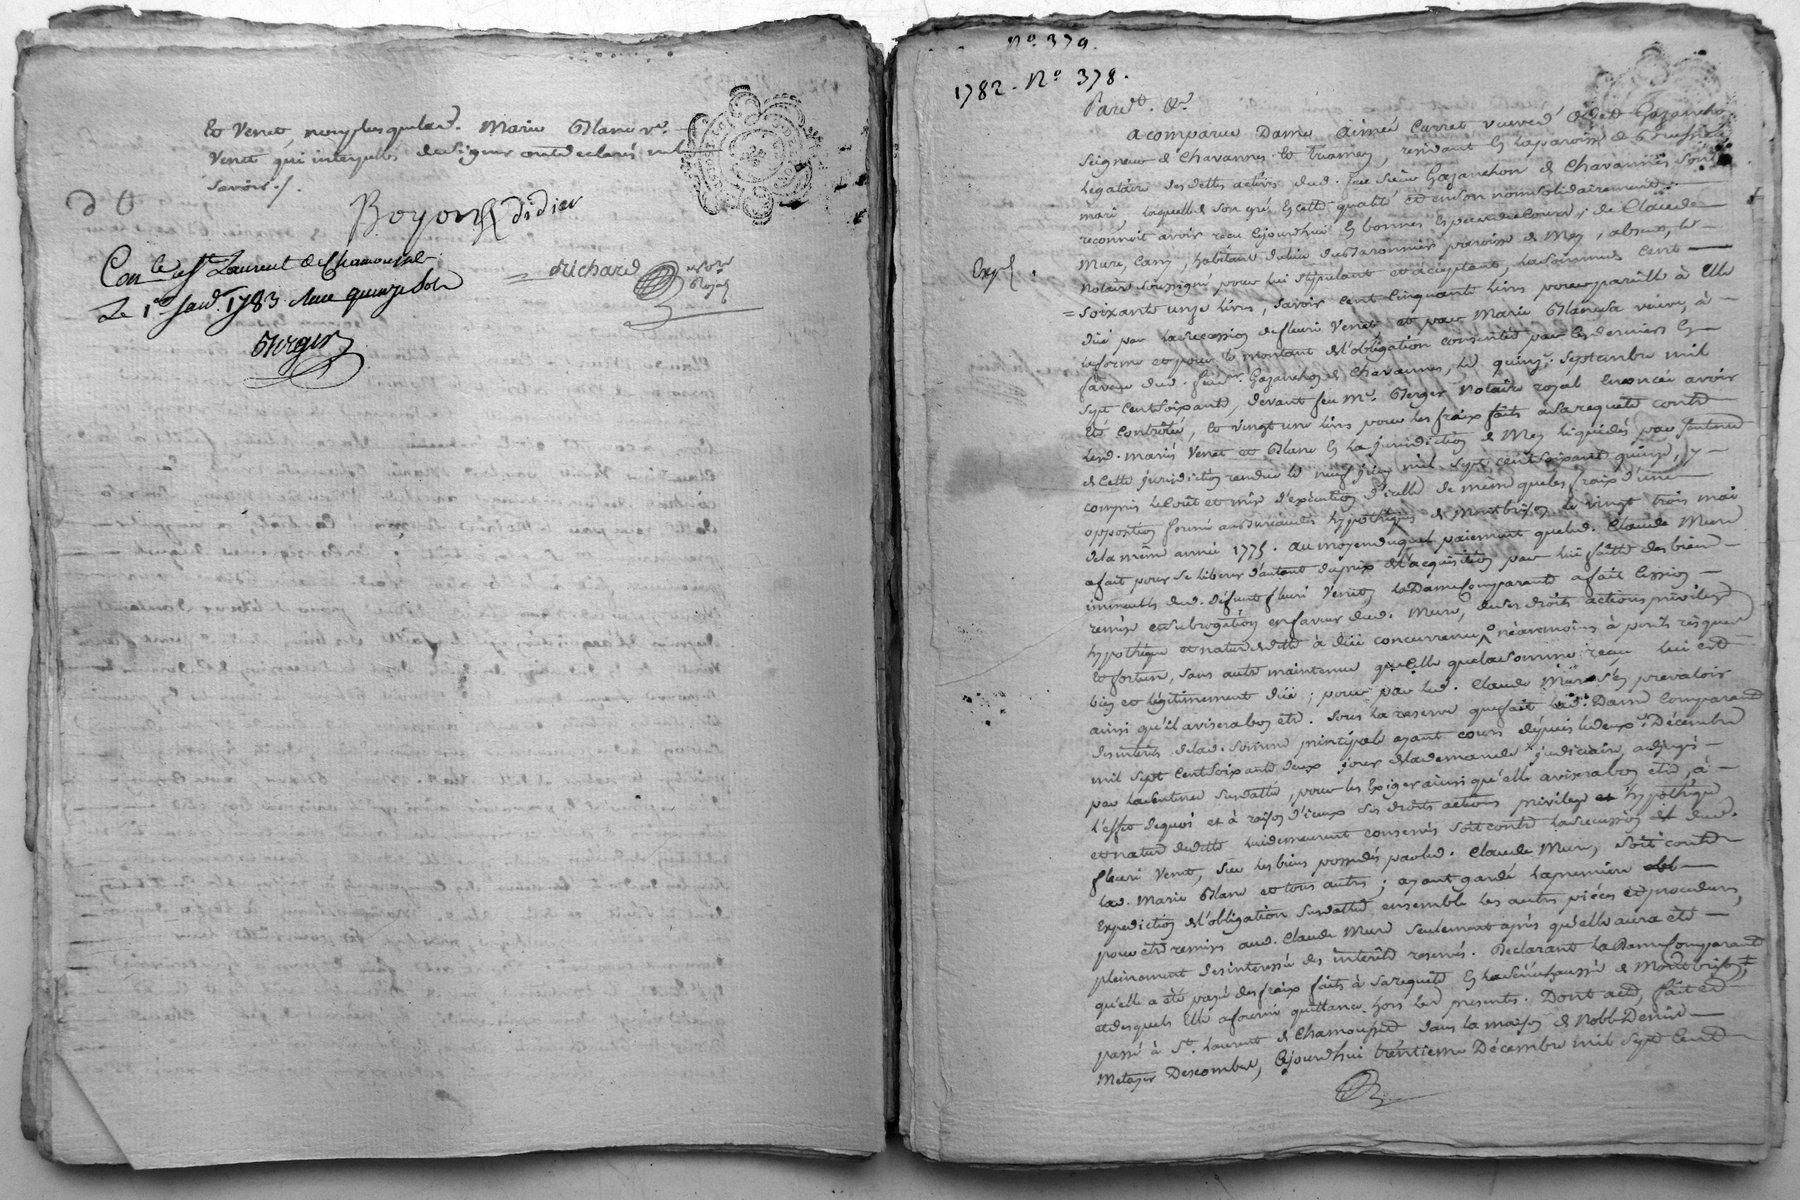 Et Venet non plus que lad. Marie Blanc ve.
Venet qui interpellés de signer ont declaré ne le
savoir ./.
Boyon didier
Con. le à St Laurent de Chamousset
Le 1er janr. 1783 Reçu quinze sols
Berger
Richard no.re Royal
N.o 379.
1782 - N.o 378.
Pard.t &.
A comparue Dame Aimée Carret veuve de Gajanchon
Seigneur de Chavannes et Tramey, residant en la paroisse de
légataire des dettes actives dud. feu Sieur Gajanchon de Chavannes son
mari, laquelle de son gré en cette qualité et en son nom solidairement
reconnoit avoir reçu cejourd'hui en bonnes especes de cours, de Claude
Mure, habitant du lieu des Baronnier paroisse de Mey, absent, le
Expé.
Notaire soussigné pour lui stipulant et acceptant, la somme de Cent
soixante onze livres, savoir Cent Cinquante livres pour pareille à Elle
düe par la succession de fleuri Venet et par Marie Blanc sa veuve, à
la forme et pour le montant de l'obligation consentie par les derniers en
faveur dud. feu Sr. Gajanchon de Chavannes, le quinze Septembre mil
sept Cent Soixante, devant feu Me. Berger Notaire royal Enoncée avoir
Eté Contrôlée, Et vingt une livres pour les fraix faits à sa requete contre
lesd. mariés Venet et Blanc en la jurisdiction de Mey liquidés par sentence
de Cette jurisdiction rendue le neuf juin mil sept cent soixante quinze, y
compris le Coût et mise d'exécution d'icelle de même que les fraix d'une
opposition formée au bureau des hypothéques de Montbrison le vingt trois mai
de la même année 1775. au moyen duquel paiement que led. Claude Mure
a fait pour se liberer d'autant du prix de l'acquisition par lui faitte des bien
immeubles dud. défunt fleuri Venet, la Dame Comparante a fait Cession
remise et subrogation en faveur dud. Mure, de ses droits actions privileges
hypothéque et nature de dette à düe concurrence, néanmoins à perils risques
et fortune, sans autre maintenue que celle que la somme reçue lui est
bien et légitimement düe; pour par led. Claude Mure s'en prevaloir
ainsi qu'il avisera bon etre. Sous la reserve que fait lad. Dame Comparante
des interets de lad. somme principale ayant cours depuis le deux Décembre
mil sept Cent soixante deux jour de la demande judiciaire adjugés
par la sentence susdatte, pour les Exiger ainsi qu'elle avisera bon etre, à
l'effet de quoi et à raison d'iceux ses droits actions privileges et hypothéque
et nature de dette lui demeurent conservés soit contre la succession dud.
fleuri Venet, sur les biens possedés par led. Claude Mure, soit contre
lad. Marie Blanc et tous autres; ayant gardé la premiere
Expedition de l'obligation susdatte ensemble les autres piéces et procedures,
pour etre remises aud. Claude Mure seulement après qu'elle aura été
pleinement desinteressée des interêts reservés. Declarant la Dame Comparante
qu'elle a été payée des fraix faits à sa requete en la Sénéchaussée de Montbrison,
et desquels Elle a fourni quittance hors les presentes. Dont acte, fait et
passé à St. Laurent de Chamousset dans la maison de Noble Denis
Metayer Descombes, Cejourd'hui trentieme Décembre mil sept Cent